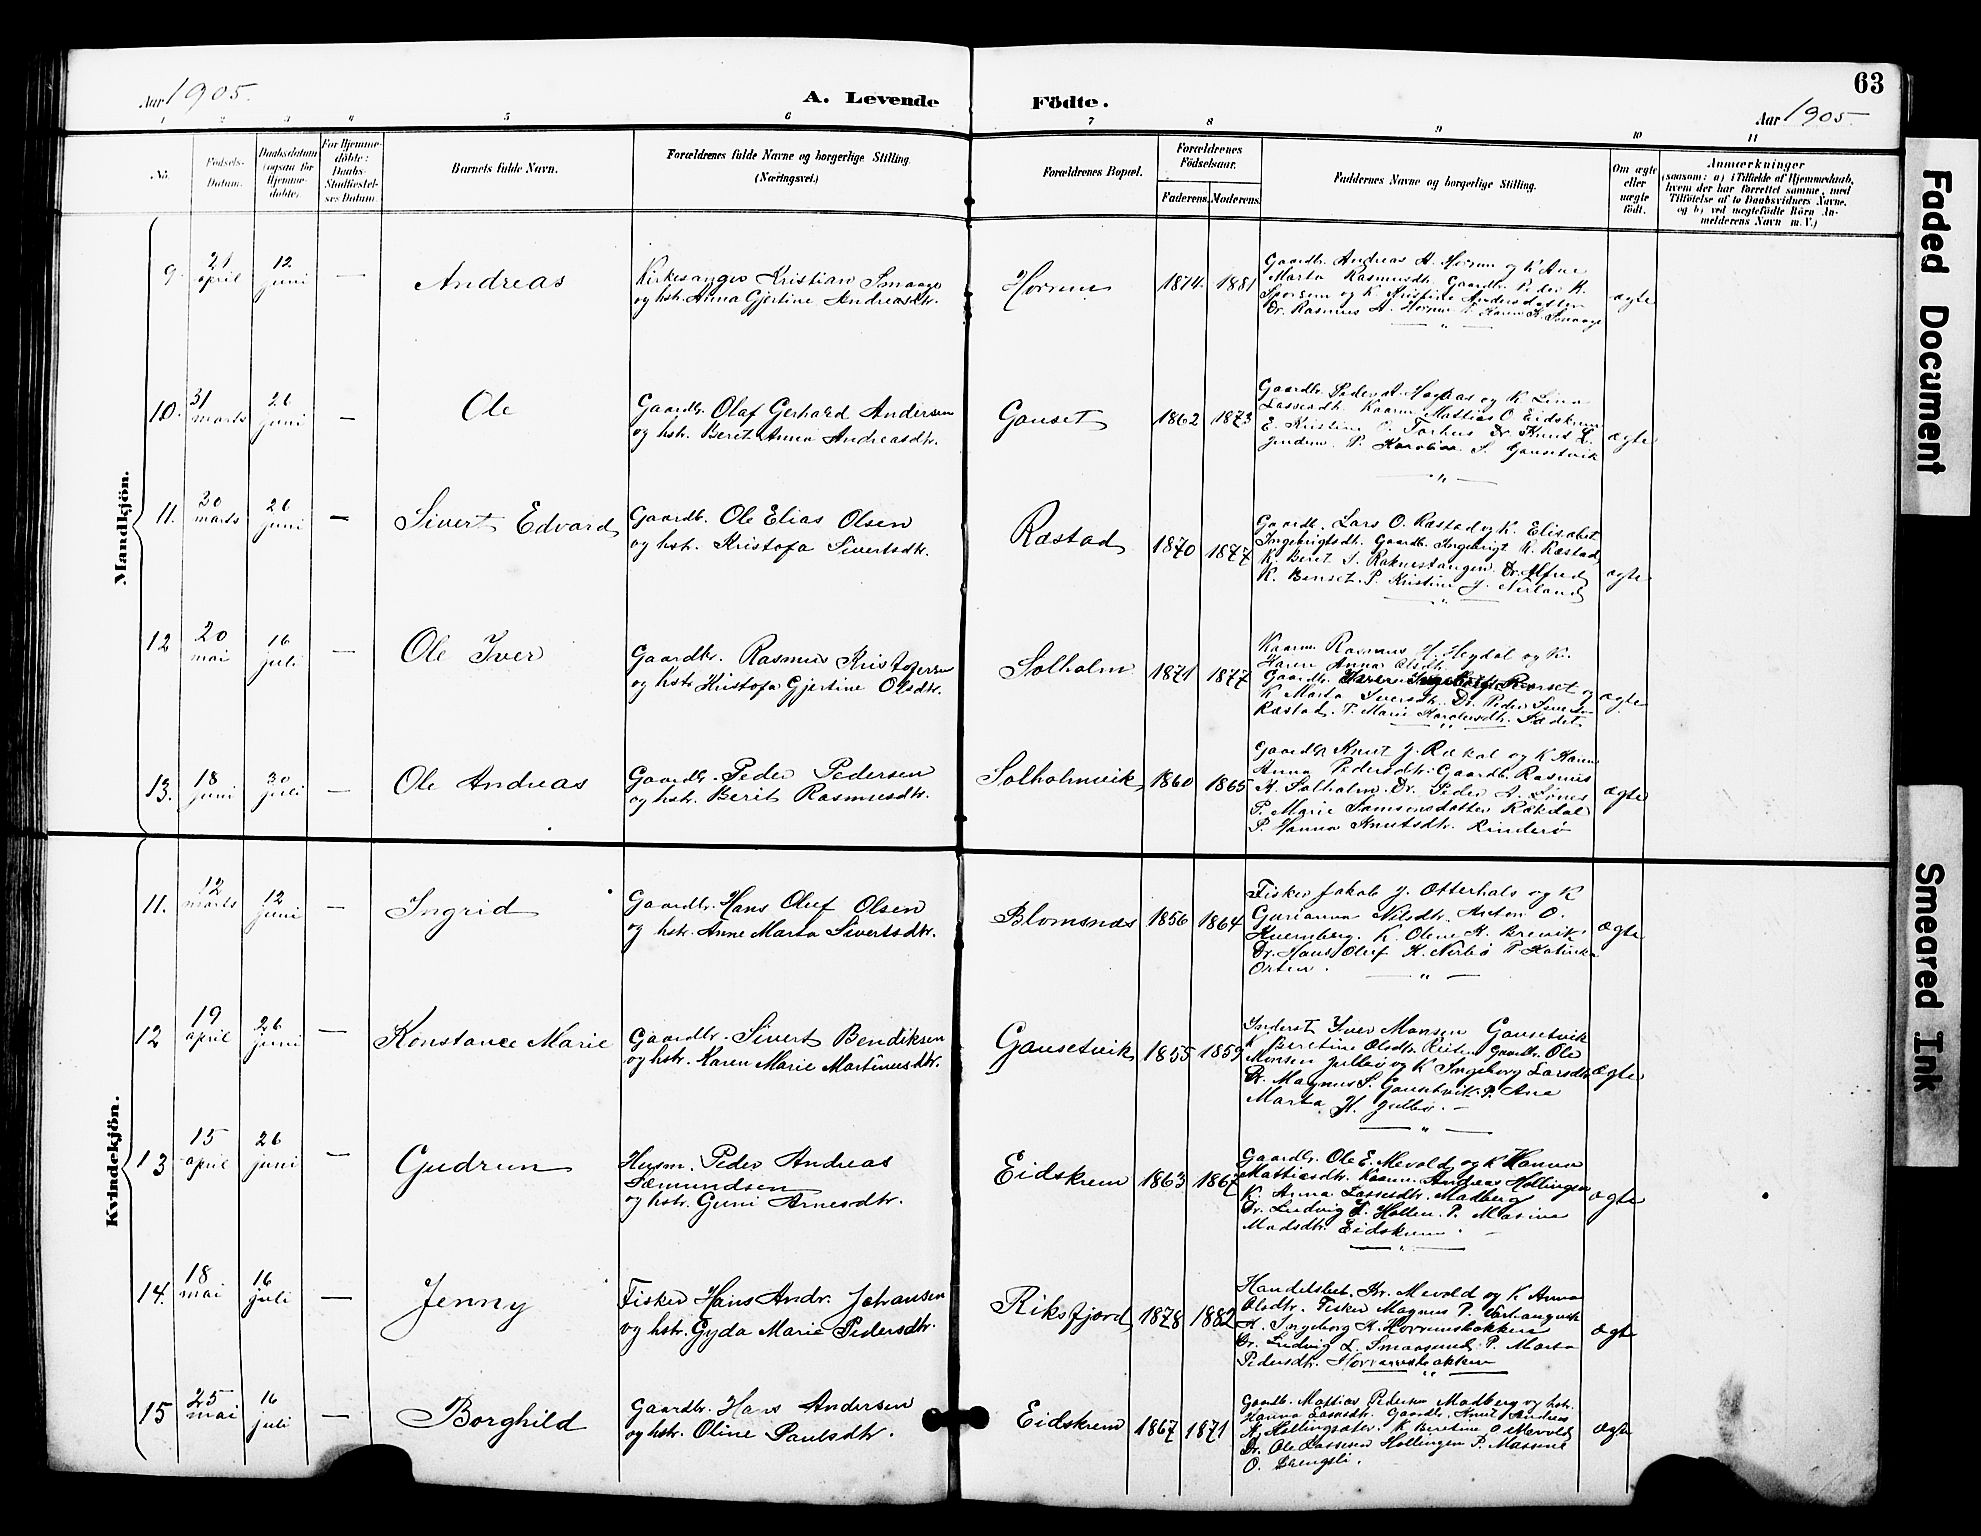 Aar 1905.
A. Levende
Födte.
63
Aar 1905
1 2 3 4 5 6 7 8 9 10 11
No.
Födsels-
Datum.
Daabsdatum
(ogsaa för
Hjemme-
döbte).
For Hjemme-
döbte:
Daabs-
Stadfæstel-
ses Datum.
Barnets fulde Navn.
Forældrenes fulde Navne og borgerlige Stilling.
(Næringsvei.)
Forældrenes Bopæl.
Forældrenes
Födselsaar.
Faderens. Moderens.
Faddernes Navne og borgerlige Stilling.
Om ægte
eller
uægte
födt.
Anmærkninger
(saasom: a) i Tilfælde af Hjemmedaab,
hvem der har forrettet samme, med
Tilföielse af to Daabsvidners Navne.
og b) ved uægtefödte Börn An-
melderens Navn m.V.)
Mandkjön.
9 21 april 12 juni — Andreas
Kirkesanger Kristian Smaage
og hst. Anna Gjertine Andreasdtr.
Horrem 1874. 1881
Gaardbr. Andreas A. Horrem og K Ane
Marta Rasmusdtr. Gaardbr. Peder K.
og K Kristine Andersdatter
Dr. Rasmus A. Horrem P. Karen K. Smaage
ægte
10. 31 marts 26 juni — Ole
Gaardbr. Olaf Gerhard Andersen
og hst. Beret Anna Andreasdtr.
Gauset 1862 1873
Gaardbr. Peder A. og K Lina
Lassedtr. Kaarm. Mattias O. Eidskrem
E. Kristine O. Torhus Dr. Knut L.
P. S. Gausetvik
ægte
11. 30 marts 26 juni — Sivert Edvard
Gaardb. Ole Elias Olsen
og hst. Kristofa Sivertsdtr.
Ræstad 1870 1877
Gaardb. Lars O. Ræstad og K. Elisabet
Ingebrigtsdtr. Gaardb. Ingebrigt K. Ræstad
K. Beret S. Raknestangen Dr. Alfred
K. Benset. P. Kristine J. Nerland
ægte
12 20 mai 16 juli — Ole Iver
Gaardbr. Rasmus Kristofersen
og hst Kristofa Gjertine Olsdtr.
Solholm 1871 1877
Kaarm. Rasmus H. Hegdal og K.
Karen Anna Olsdtr.
Gaardbr. Rørset og
K Marta Iversdtr. Dr. Peder Iversen
Ræstad. P. Marie Sædet.
ægte
13. 18 juni 30 juli — Ole Andreas
Gaardbr. Peder Pedersen
og hst. Berit Rasmusdtr.
Solholmvik 1860 1865
Gaardbr Knut J. Rækdal og K Hanna
Anna Pedersdtr. Gaardb. Rasmus
K. Solholm. Dr. Peder A.
P. Marie Samsonsdatter Rækdal
P. Hanna Knutsdtr. Rinderø
ægte
Kvindekjön.
11. 12 marts 12 juni — Ingrid
Gaardbr. Hans Oluf Olsen
og hst. Anne Marta Sivertsdtr.
Blomsnæs 1856 1864
Fisker Jakob J. Otterhals og K
Gurianna Nilsdtr. Anton O.
Kvernberg. K. Oline K. Brevik
Dr. Hans Oluf K. Nerbø P. Katinka
Orten.
ægte
12 19 april 26 juni — Konstance Marie
Gaardbr. Sivert Bendiksen
og hst. Karen Marie Martinusdtr.
Gausetvik 1855 1859
Inderst Iver Monsen Gausetvik
K Beretine Olsdtr. Reiten Gaardbr. Ole
Monsen Julbø og K Ingeborg Larsdtr.
Dr. Magnus S. Gausetvik P. Ane
Marta H. Julbø.
ægte
13 15 april 26 juni — Gudrun
Husm. Peder Andreas
Sæmundsen
og hst. Guni Arnesdtr.
Eidskrem 1863 1867
Gaardbr. Ole E. Mevold og K Hanna
Mattiasdtr. Kaarm. Andreas Hollingen
K. Anna Lassesdtr. Madberg
Dr. Ludvig T. Hollen. P. Masine
Madsdtr. Eidskrem.
ægte
14. 18 mai 16 juli — Jenny
Fisker Hans Andr. Johansen
og hst. Gyda Marie Pedersdtr.
Riksfjord 1878 1882
Handelsbet. Kr. Mevold og K Anna
Olsdtr. Fisker Magnus P. Varhaugvik
K. Ingeborg K. Horremsbakken
Dr. Ludvig L. Smaasund. P. Marta
Pedersdtr. Horremsbakken
ægte
15 25 mai 16 juli — Borghild
Gaardbr. Hans Andersen
og hst. Oline Paulsdtr.
Eidskrem 1867 1871
Gaardb. Mattias Pedersen Madberg og hst.
Hanna Lassedtr. Gaardbr. Knut Andreas
A. Hollingsæter. K Beretine O Mevold
Dr. Ole Lassesen Hollingen P. Massine
O.
ægte
Faded Document
Smeared Ink